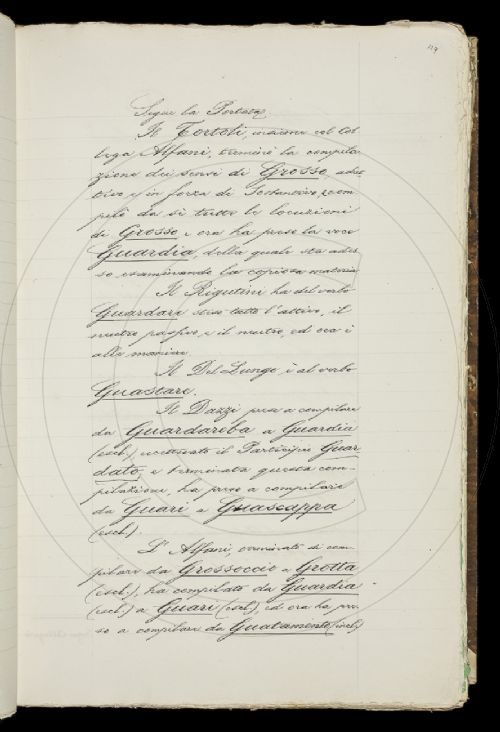 119
Segue la Tortoli
Il Tortoli, insieme col Col
lega Alfani, terminò la compila
zione dei sensi di Grosso, adiet
tivo e in forza di Sostantivo, e com
pilò da sè tutte le locuzioni
di Grosso e ora ha preso la voce
Guardia, della quale sta ades
so esaminando la copiosa materia.
Il Rigutini ha del verbo
Guardare steso tutto l'attivo, il
neutro passivo, e il neutro, ed ora è
alle maniere.
Il Del Lungo è al verbo
Guastare.
Il Dazzi prese a compilare
da Guardaroba a Guardia
(escl.) eccettuato il Participio Guar
dato, e terminata questa com-
pilazione, ha preso a compilare
da Guari a Guascappa
(escl.)
L'Alfani, terminato di com-
pilare da Grossoccio a Grotta
(escl.), ha compilato da Guardia
(escl.) a Guari (escl.), ed ora ha pre-
so a compilare da Guatamento (incl.)